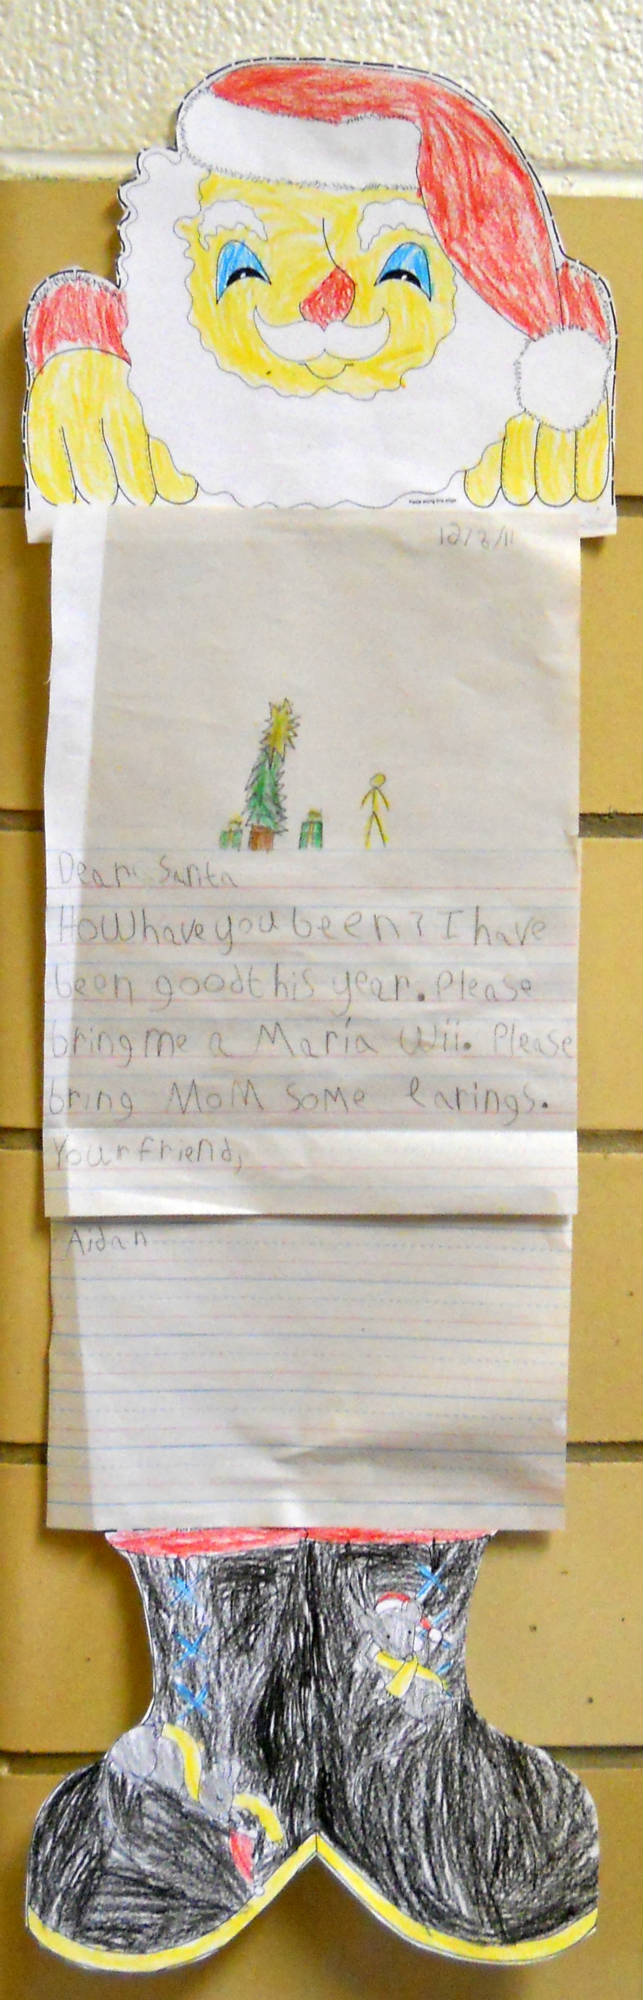 12/8/11
Dear Santa
How have you been? I have
been good this year. Please
bring me a Maria Wii. Please
bring MoM some earings.
Your friend,
Aidan